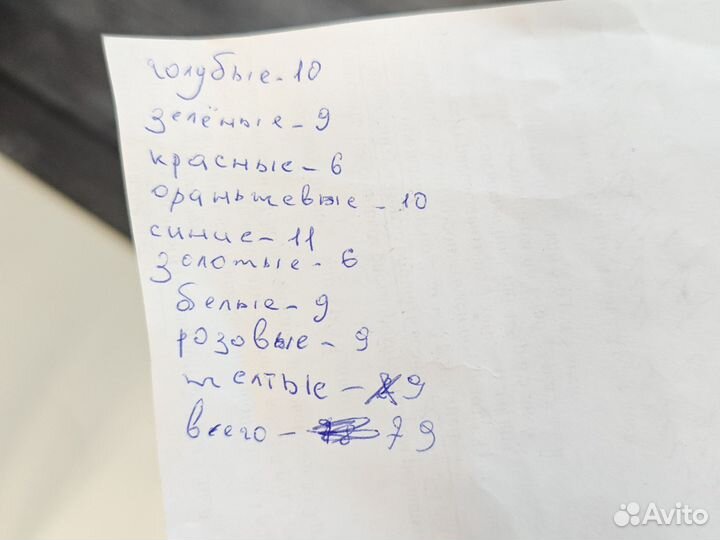 голубые - 10
зелёные - 9
красные - 6
ораньжевые - 10
синие - 11
золотые - 6
белые - 9
розовые - 9
желтые - 9
всего - 79
Avito